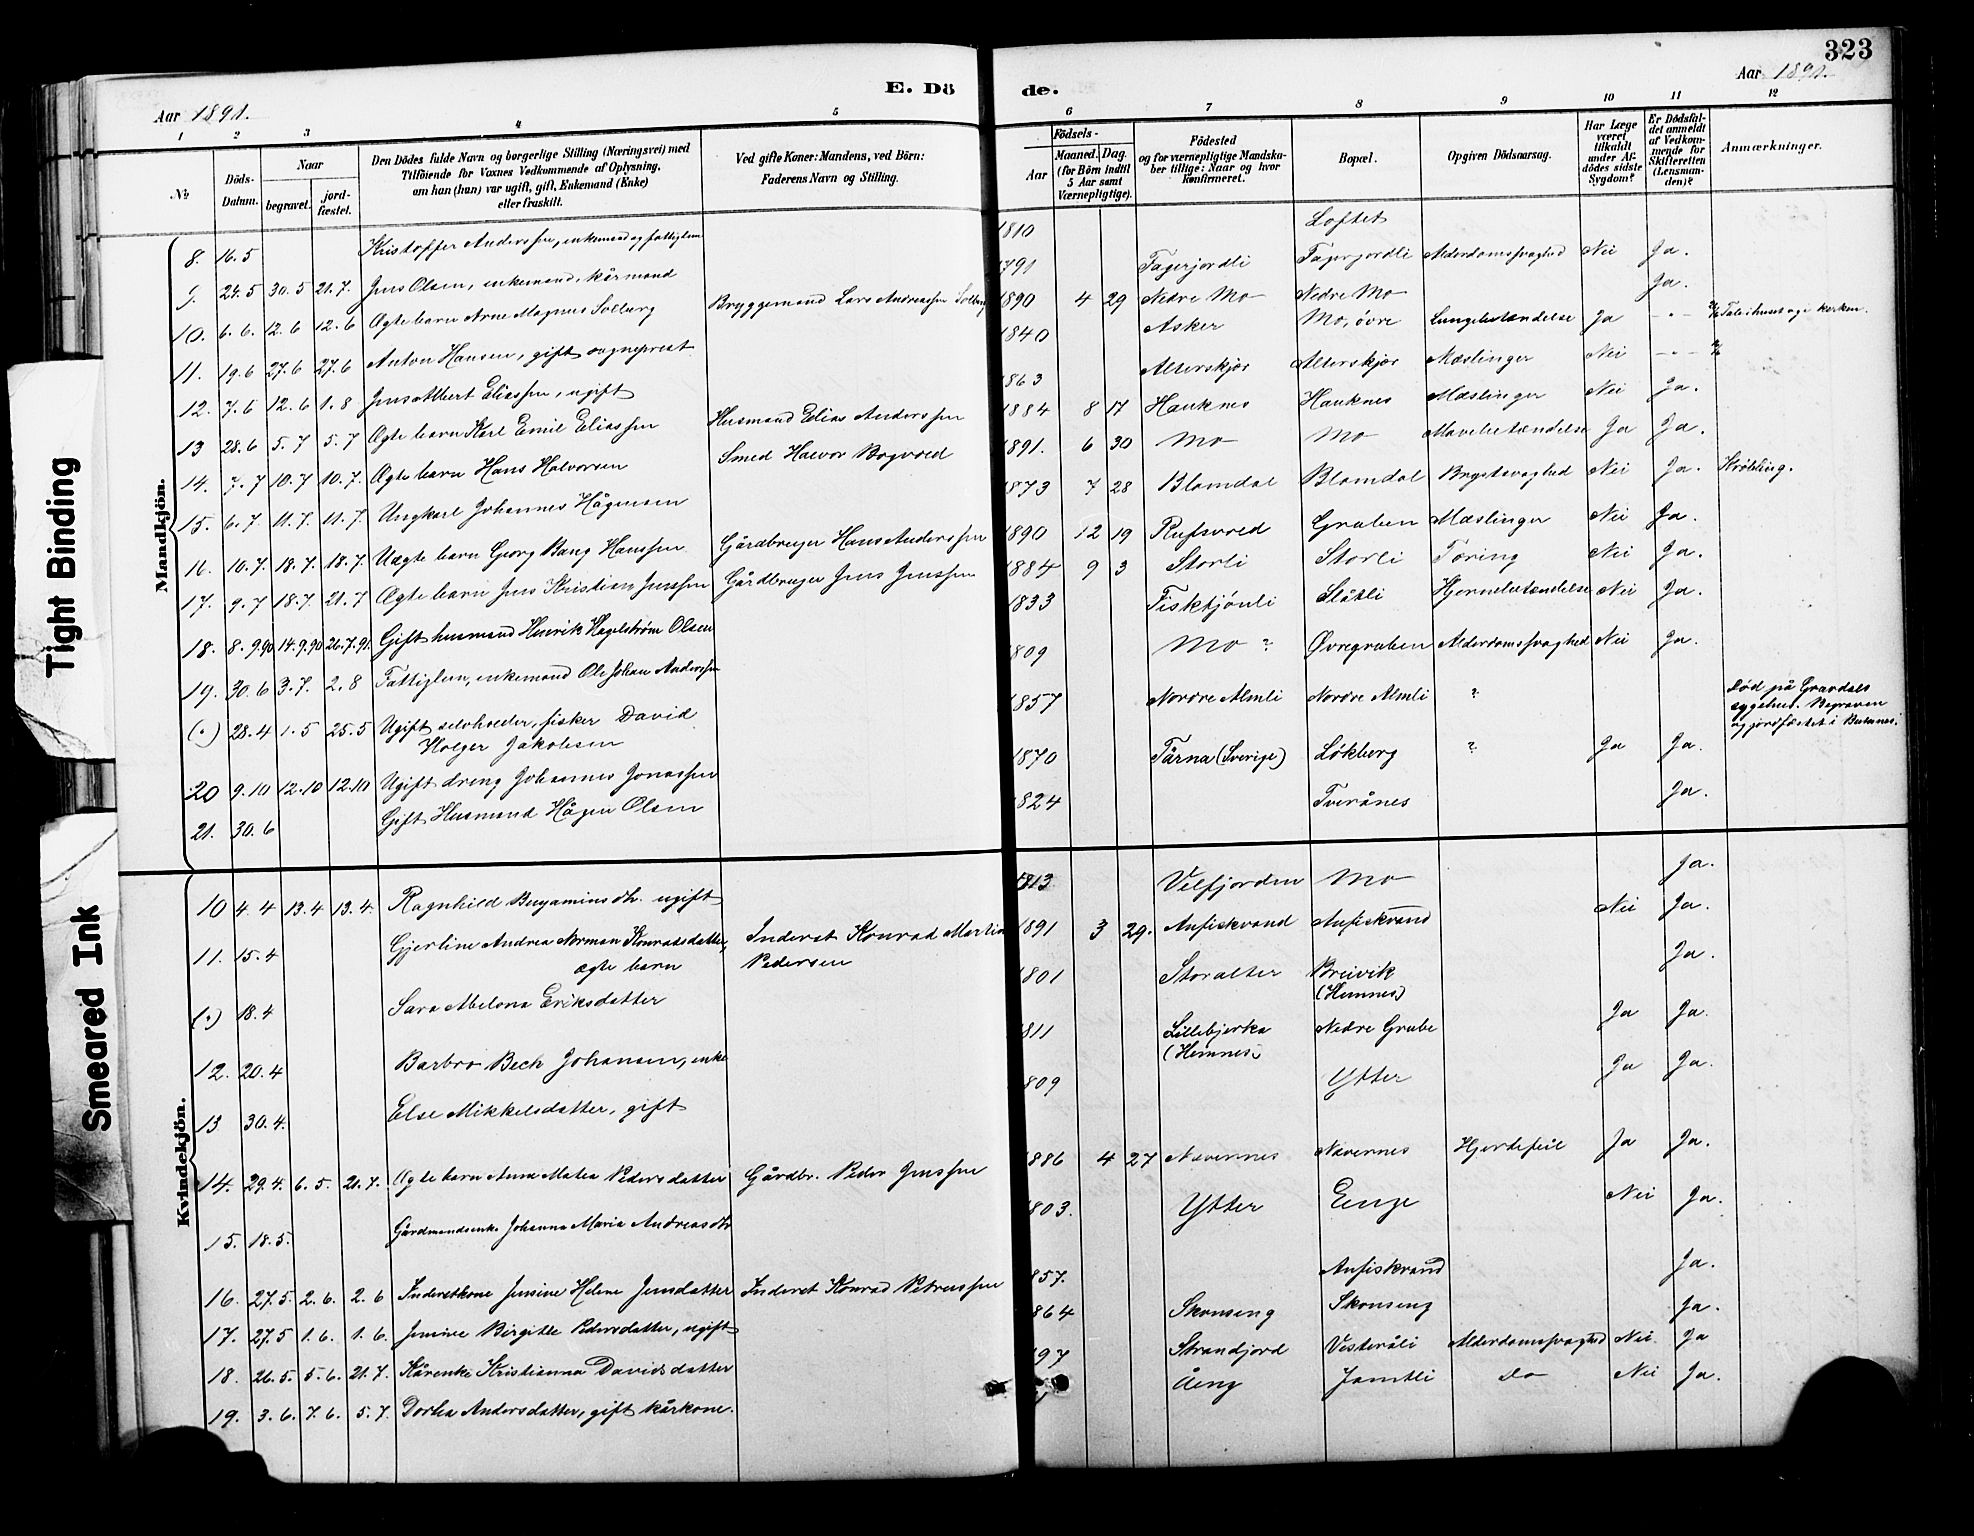 323
E. Dö de.
Aar 1891. Aar 1891.
1 2 3 4 5 6 7 8 9 10 11 12
№
Döds-Datum.
Naar
begravet. jord-fæstet.
Den Dödes fulde Navn og borgerlige Stilling (Næringsvei) med
Tilföiende for Voxnes Vedkommende af Oplysning,
om han (hun) var ugift, gift, Enkemand (Enke)
eller fraskilt.
Ved gifte Koner: Mandens, ved Börn:
Faderens Navn og Stilling.
Födsels-
Aar
Maaned. Dag.
(for Börn indtil
5 Aar samt
Værnepligtige).
Födested
og for værnepligtige Mandska-
ber tillige: Naar og hvor
konfirmeret.
Bopæl.
Opgiven Dödsaarsag.
Har Læge
været
tilkaldt
under Af-
dödes sidste
Sygdom?
Er Dödsfal-
det anmeldt
af Vedkom-
mende for
Skifteretten
(Lensman-
den)?
Anmærkninger.
Mandkjön.
8. 16.5 Kristoffer Anderssen, enkemand og fattiglem 1810 Loftet
9. 24.5 30.5 21.7. Jens Olsen, enkemand, kårmand 1791 Fagerjordli Fagerjordli Alderdomssvaghed Nei Ja.
10. 6.6. 12.6 12.6 Ægte barn Arne Magnus Solberg Bryggemand Lars Andreassen Solberg 1890 4 29 Nedre Mo Nedre Mo Ja.
11. 19.6 27.6 27.6 Anton Hansen, gift 1840 Asker Mo, övre Lungebetændelse Ja -"- Tale i huset og i kirken.
12. 7.6 12.6 1.8 Jens Albert Eliassen, ugift 1863 Alterskjær Alterskjær Mæslinger Nei -"-
13 28.6 5.7 5.7 Ægte barn Karl Emil Eliassen Husmand Elias Anderssen 1884 8 17 Hauknes Hauknes Mæslinger Nei Ja.
14. 7.7 10.7 10.7. Ægte barn Hans Halvorsen Smed Halvor Bogvold 1891. 6 30 Mo Mo Mavebetændelse Ja Ja.
15. 6.7. 11.7. 11.7. Ungkarl Johannes Hågensen 1873 7 28 Blomdal Blomdal Brystsvaghed Nei Ja. Kröbling.
16. 10.7. 18.7. 18.7. Uægte barn Georg Bang Hanssen Gårdbruger Hans Anderssen 1890 12 19 Rufsvold Gruben Mæslinger Nei Ja.
17. 9.7 18.7. 21.7 Ægte barn Jens Kristian Jenssen Gårdbruger Jens Jenssen 1884 9 3 Storli Storli Tæring Nei Ja.
18. 8.9.90 14.9.90 26.7.91. Gift husmand Henrik Hagelström Olsen 1833 Fisktjönli Slåtli Hjernebetændelse Nei Ja.
19. 30.6 3.7. 2.8 Fattiglem, enkemand Ole Johan Anderssen 1809 Mo ? Øvregruben Alderdomssvaghed Nei Ja.
(") 28.4 1.5 25.5 Ugift selvholder, fisker David
Holger Jakobsen 1857 Nordre Almli Nordre Almli ? Død på Gravdals
sygehus. Begraven
og jordfæstet i Buksnes.
20 9.10 12.10 12.10 Ugift dreng Johannes Jonassen 1870 Tärna (Sverige) Lökberg ? Ja Ja.
21. 30.6 Gift Husmand Hågen Olsen 1824 Tverånes Ja.
Kvindekjön.
10 4.4 13.4 13.4. Ragnhild Benjaminsdtr. ugift 1813 Velfjorden Mo Ja.
11. 15.4 Gjertine Andrea Norman Konradsdatter,
ægte barn Inderst Konrad Martin
Pedersen 1891 3 29. Anfiskvand Anfiskvand Nei Ja.
(") 18.4 Sara Abelona Eriksdatter 1801 Storalter Breivik
(Hemnes) Ja.
12. 20.4 Barbro Bech Johansen, enke 1811 Lillebjerka
(Hemnes) Nedre Grube Ja Ja.
13 30.4. Else Mikkelsdatter, gift 1809 Ytter Ja Ja.
14. 29.4. 6.5. 21.7. Ægte barn Anna Matea Pedersdatter Gårdbr. Peder Jenssen 1886 4 27 Nævernes Nævernes Hjertefeil Ja Ja.
15. 18.5. Gårdmandsenke Johanna Maria Andreasdtr 1803. Ytter Enge Nei Ja.
16. 27.5. 2.6. 2.6 Inderstkone Jensine Helene Jensdatter Inderst Konrad Petrussen 1857. Anfiskvand Ja.
17. 27.5 1.6. 1.6. Jensine Birgitte Pedersdatter, ugift 1864 Skonseng Skonseng Ja.
18. 26.5. 5.6. 21.7. Kårenke Kristianna Davidsdatter 1797 Strandjord Vesteråli Alderdomssvaghed Nei Ja
19. 3.6. 7.6. 5.7. Dortea Andersdatter, gift kårkone. Åeng Jamtli Do Nei Ja.
Tight Binding
Smeared Ink